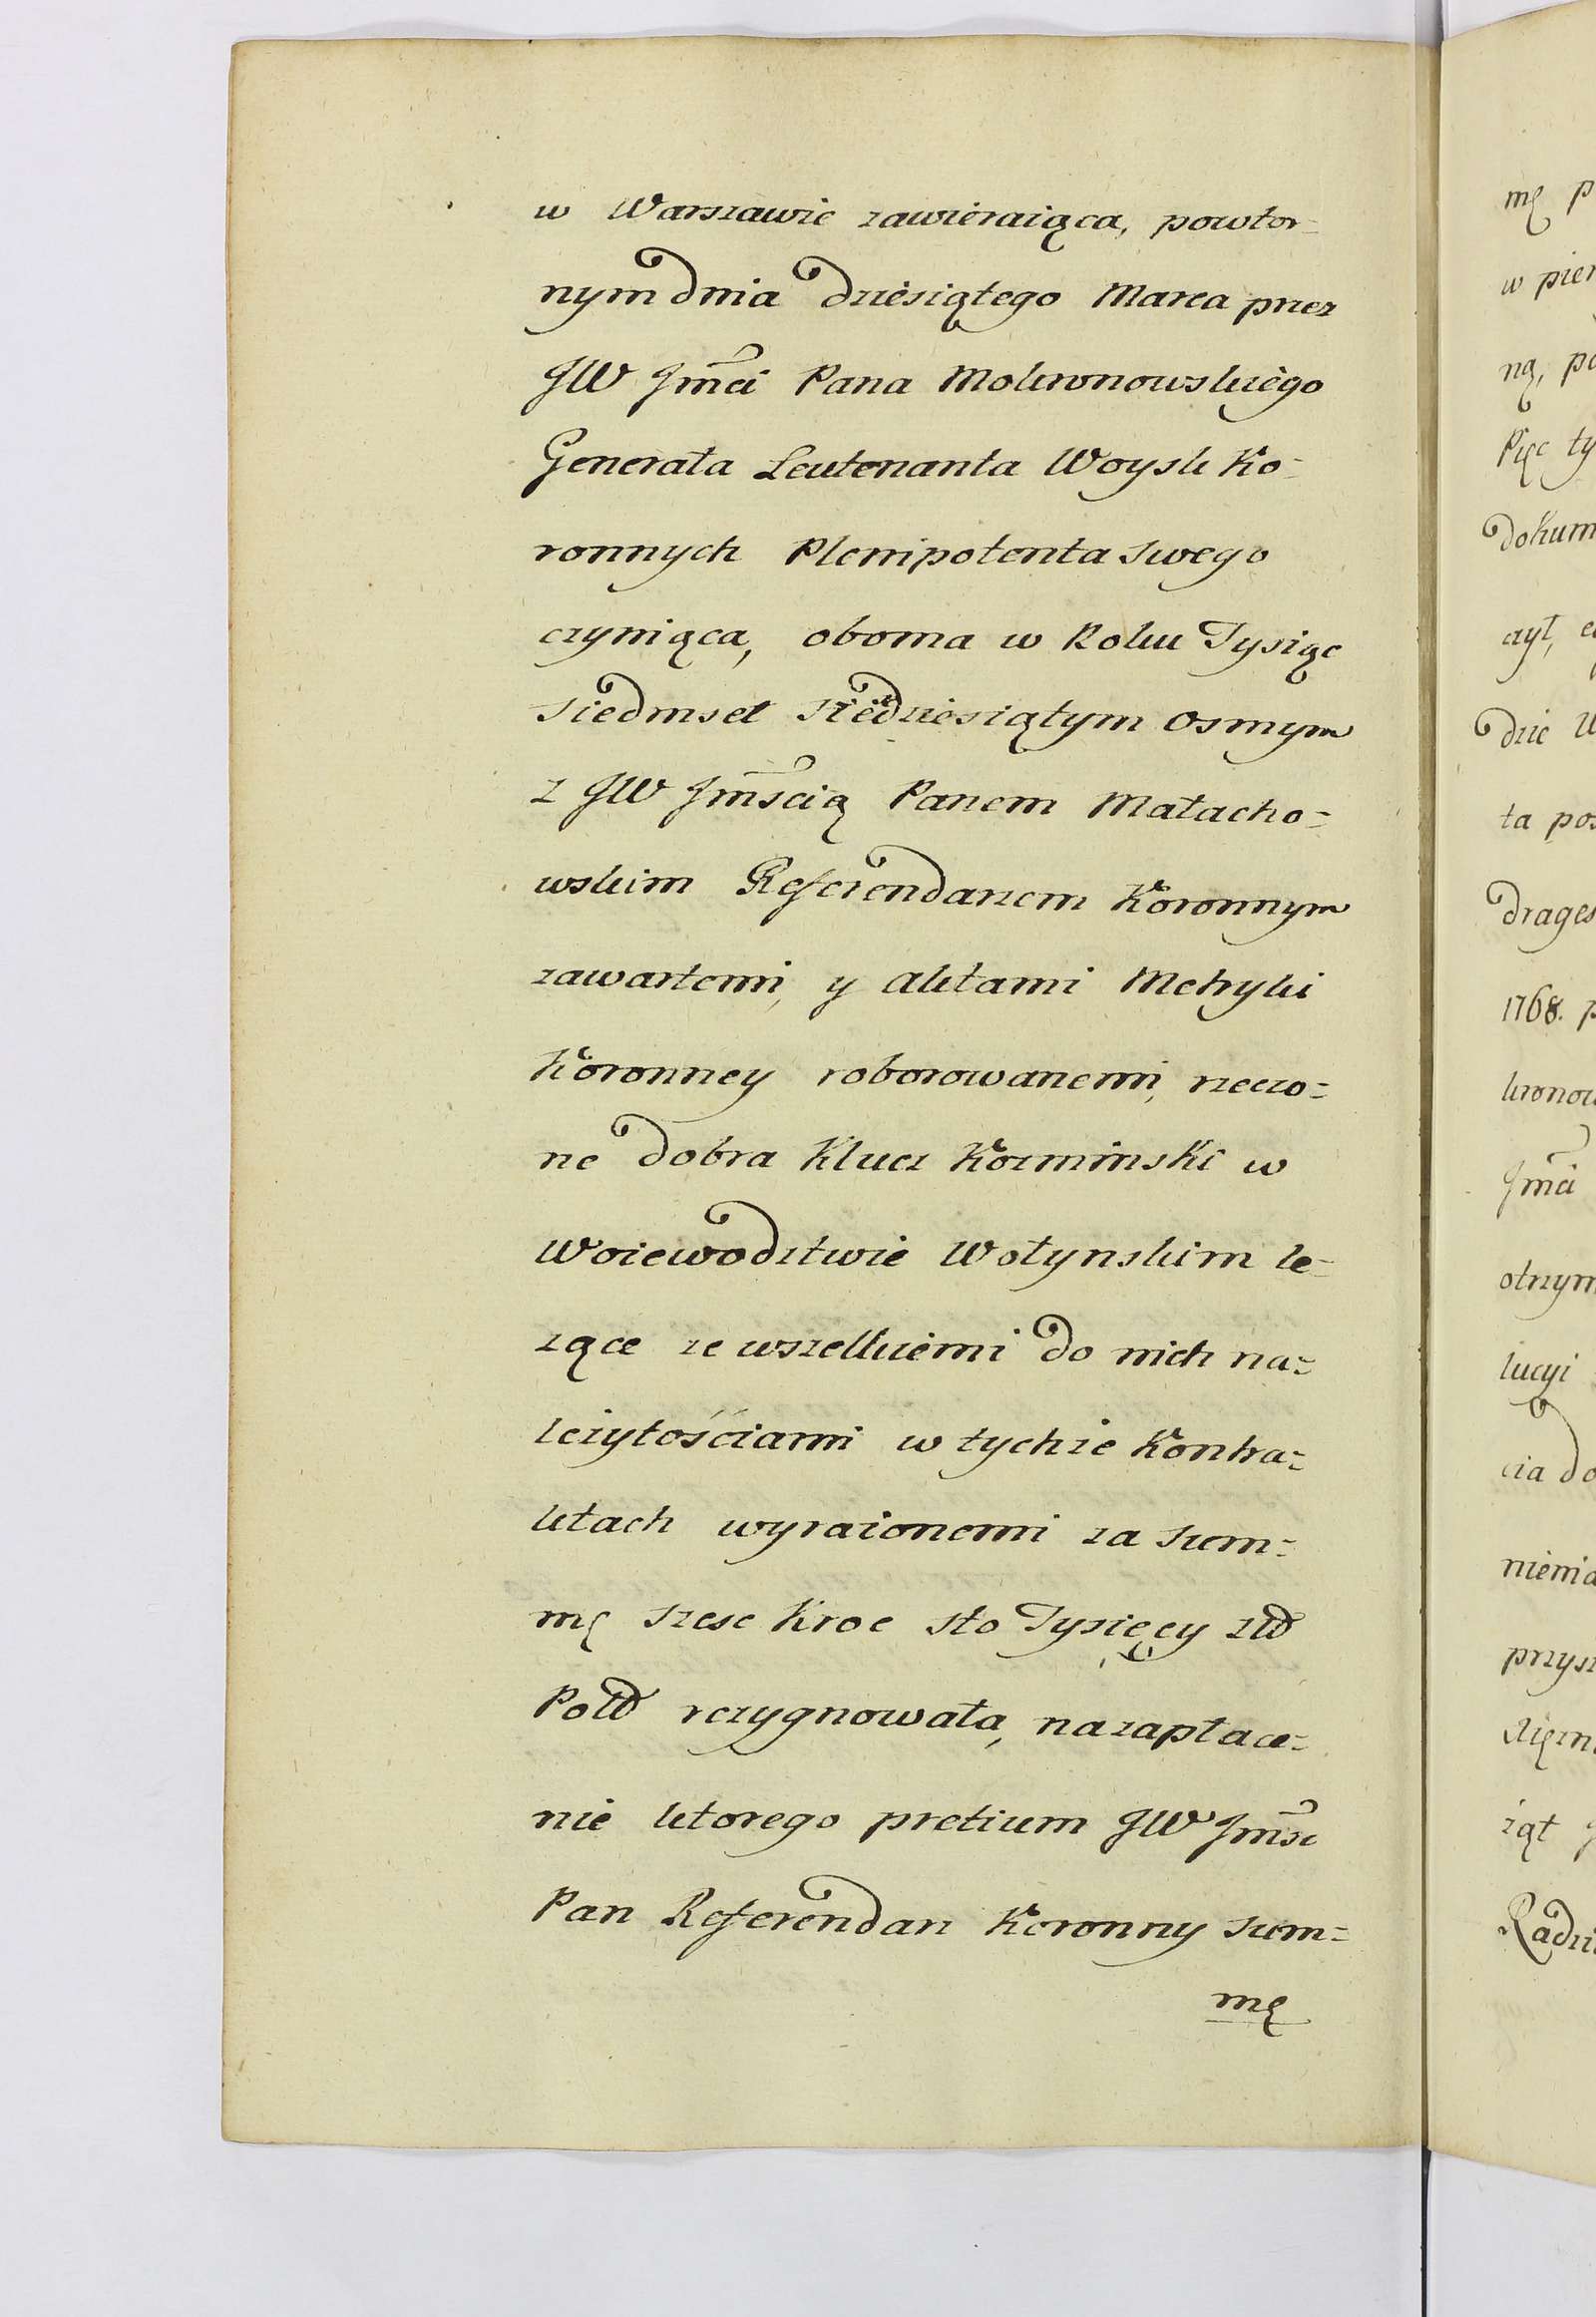 w Warszawie zawieraiąca, powtor=
nym dnia dziesiątego Marca przez
JW Jmći Pana Mokronowskiego
Generała Leutenanta Woysk Ko=
ronnych Plenipotenta swego
czyniąca, oboma w Roku Tysiąc
siedmset sześdziesiątym osmym
z JW Jmścią Panem Małacho=
wskim Referendarzem Koronnym
zawartemi, y aktami Metryki
Koronney roborowanemi, rzeczo=
ne dobra Klucz Kozminski w
Woiewodztwie Wołynskim le=
zące ze wszelkiemi do nich na=
leżytościami w tychże Kontra=
ktach wyrażonemi za sum=
mę szesc Kroc sto Tysięcy złł
Poll rezygnowała, na zapłace=
nie ktorego pretium JW Jmśc
Pan Referendarz Koronny sum=
mę
mę p
w pier
ną, po
Pięc ty
dokum
czył, 
dzie W
ta pos
drages
1768. p
kronow
Jmći
otrzym
lucyi
cia do
nienia
przysz
żął J
Radzi